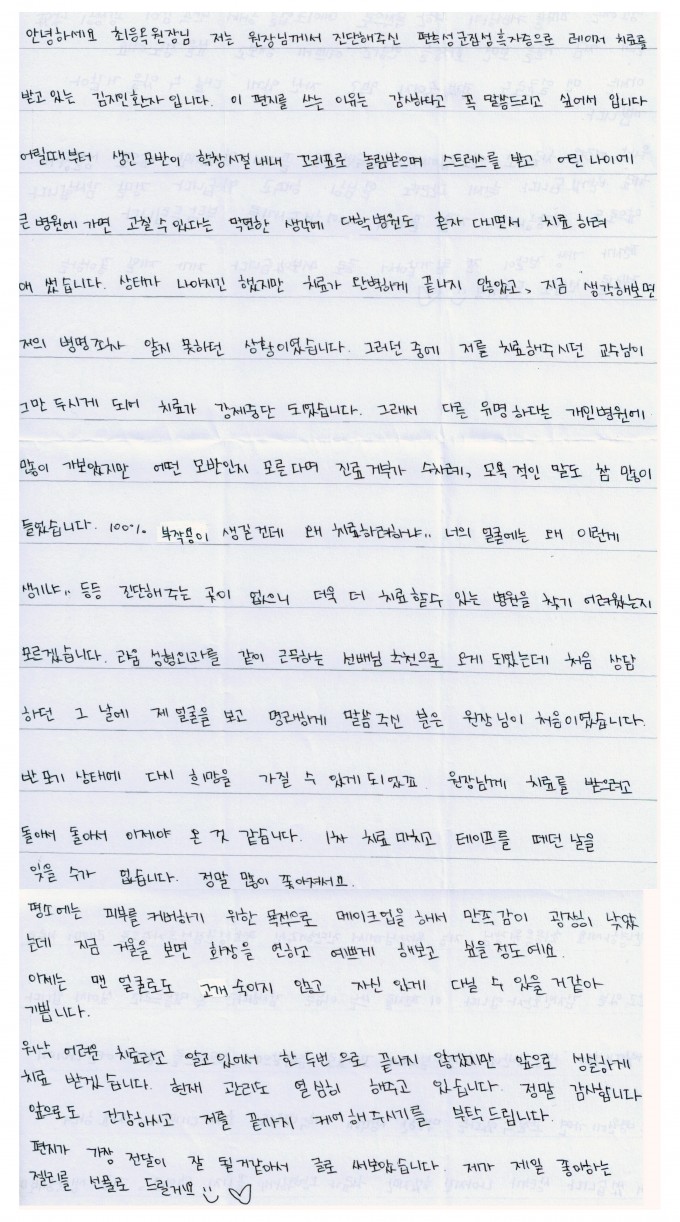 안녕하세요 최응옥원장님 저는 원장님께서 진단해주신 편측성군집성흑자증으로 레이저 치료를
받고있는 김지민환자 입니다. 이 편지를 쓰는 이유는 감사하다고 꼭 말씀드리고 싶어서 입니다
어릴때부터 생긴 모반이 학창시절내내 꼬리표로 놀림받으며 스트레스를 받고 어린 나이에
큰 병원에 가면 고칠 수 있다는 막연한 생각에 대학병원도 혼자 다니면서 치료 하려
애 썼습니다. 상태가 나아지긴 했지만 치료가 완벽하게 끝나지 않았고, 지금 생각해보면
저의 병명조차 알지 못하던 상황이었습니다. 그러던 중에 저를 치료해주시던 교수님이
그만 두시게 되어 치료가 강제중단 되었습니다. 그래서 다른 유명하다는 개인병원에
많이 가보았지만 어떤 모반인지 모른다며 진료거부가 수차례, 모욕적인 말도 참 많이
들었습니다. 100% 부작용이 생길건데 왜 치료하려하냐.. 너의 얼굴에는 왜 이런게
생기냐.. 등등 진단해주는 곳이 없으니 더욱 더 치료할수 있는 병원을 찾기 어려웠는지
모르겠습니다. 라움 성형외과를 같이 근무하는 선배님 추천으로 오게 되었는데 처음 상담
하던 그 날에 제 얼굴을 보고 명쾌하게 말씀 주신 분은 원장님이 처음이었습니다.
반 포기 상태에 다시 희망을 가질 수 있게 되었죠. 원장님께 치료를 받으려고
돌아서 돌아서 이제야 온 것 같습니다. 1차 치료 마치고 테이프를 떼던 날을
잊을 수가 없습니다. 정말 많이 좋아져서요.
평소에는 피부를 커버하기 위한 목적으로 메이크업을 해서 만족감이 굉장히 낮았
는데 지금 거울을 보면 화장을 연하고 예쁘게 해보고 싶을 정도예요.
이제는 맨 얼굴로도 고개 숙이지 않고 자신 있게 다닐 수 있을 거같아
기쁩니다.
워낙 어려운 치료라고 알고있어서 한 두번 으로 끝나지 않겠지만 앞으로 성실하게
치료 받겠습니다. 현재 관리도 열심히 해주고 있습니다. 정말 감사합니다
앞으로도 건강하시고 저를 끝까지 케어해주시기를 부탁 드립니다.
편지가 가장 전달이 잘 될거같아서 글로 써보았습니다. 제가 제일 좋아하는
젤리를 선물로 드릴게요